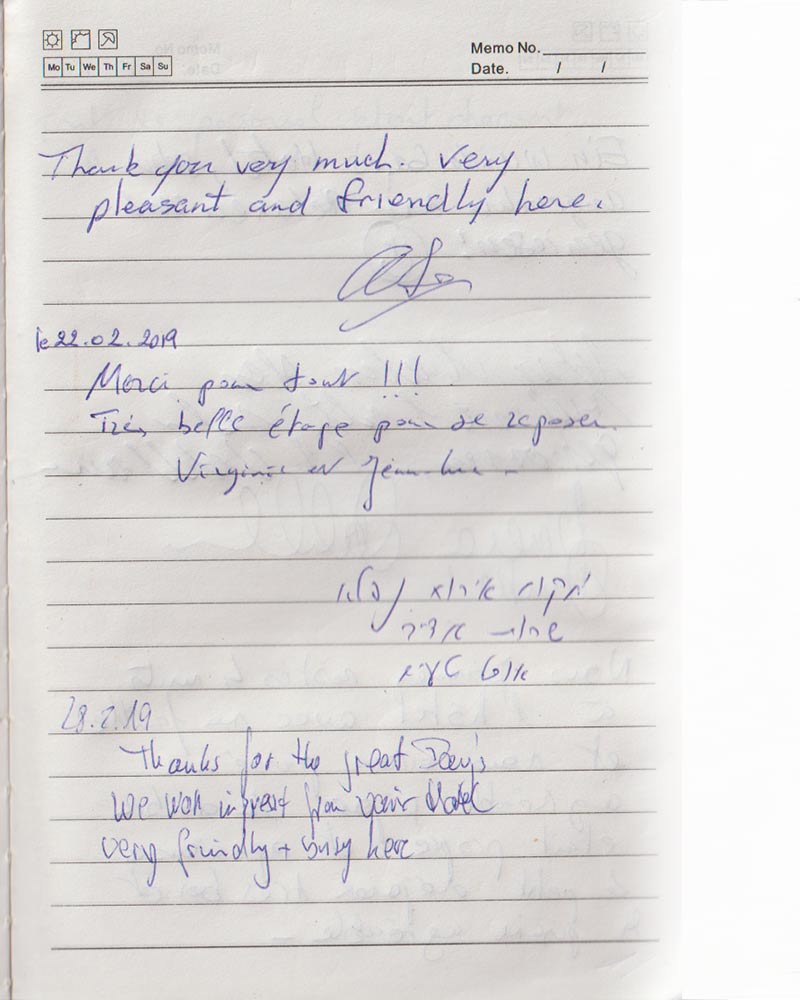 Mo Tu We Th Fr Sa Su
Memo No.
Date. / /
Thank you very much. Very
pleasant and friendly here.
le 22.02.2019
Merci pour tout !!!
Très belle étape pour se reposer.
Virginie et Jean-Luc
מקום אירוח נפלא
שרות אדיר
אוכל טעים
28.2.19
Thanks for the great Day's
We war from your Hotel
very friendly + busy here